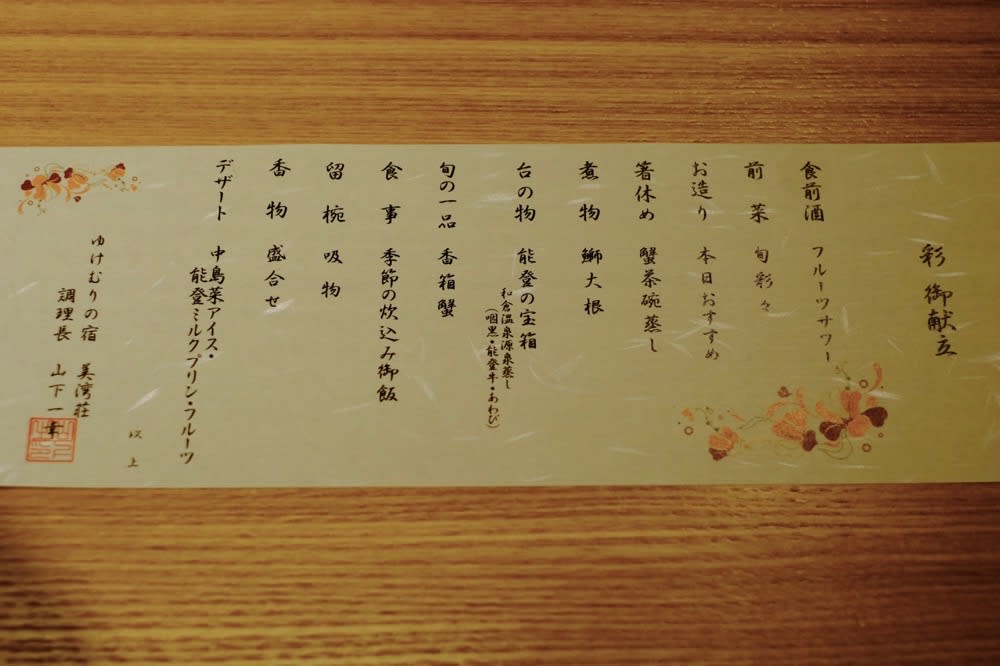 彩 御献立
食前酒 フルーツサワー
前菜 旬彩々
お造り 本日おすすめ
箸休め 蟹茶碗蒸し
煮物 鰤大根
台の物 能登の宝箱
和倉温泉源泉蒸し
(咽黒・能登牛・あわび)
旬の一品 香箱蟹
食事 季節の炊込み御飯
留椀 吸物
香物 盛合せ
デザート 中島菜アイス・
能登ミルクプリン・フルーツ
以上
ゆけむりの宿 美湾荘
調理長 山下一幸